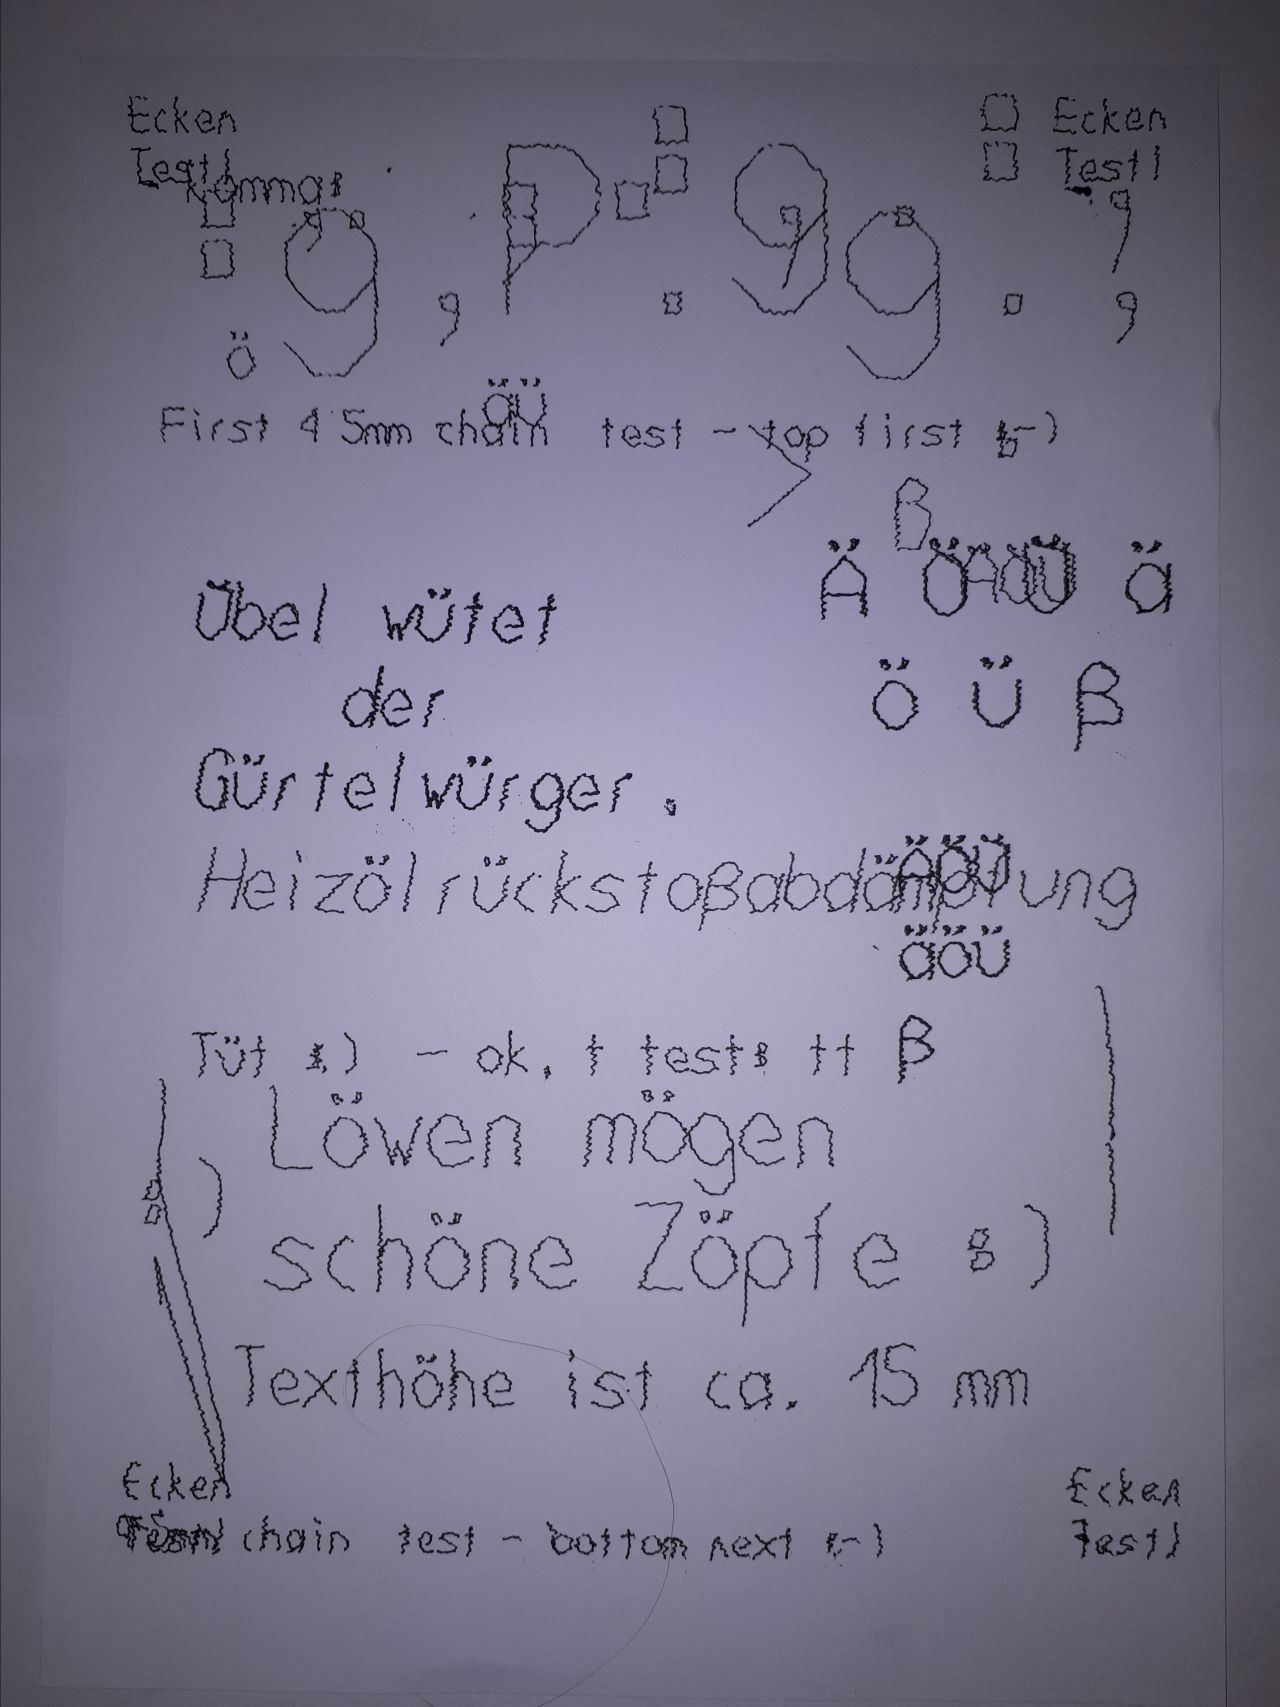 Ecken
Ecken
Test!
Test!
Kommas
g , P : 9 g . ,
ö
äü
First 4.5mm chain test - top first :-)
β
Ä Ö Ü ä
Übel wütet
der
ö ü β
Gürtelwürger.
Heizölrückstoßabdämpfung
ÄÖÜ
äöü
Tüt :) - ok. t test: tt β
Löwen mögen
:)
schöne Zöpfe :)
Texthöhe ist ca. 15 mm
Ecken
Ecken
chain test - bottom next :-)
Test!